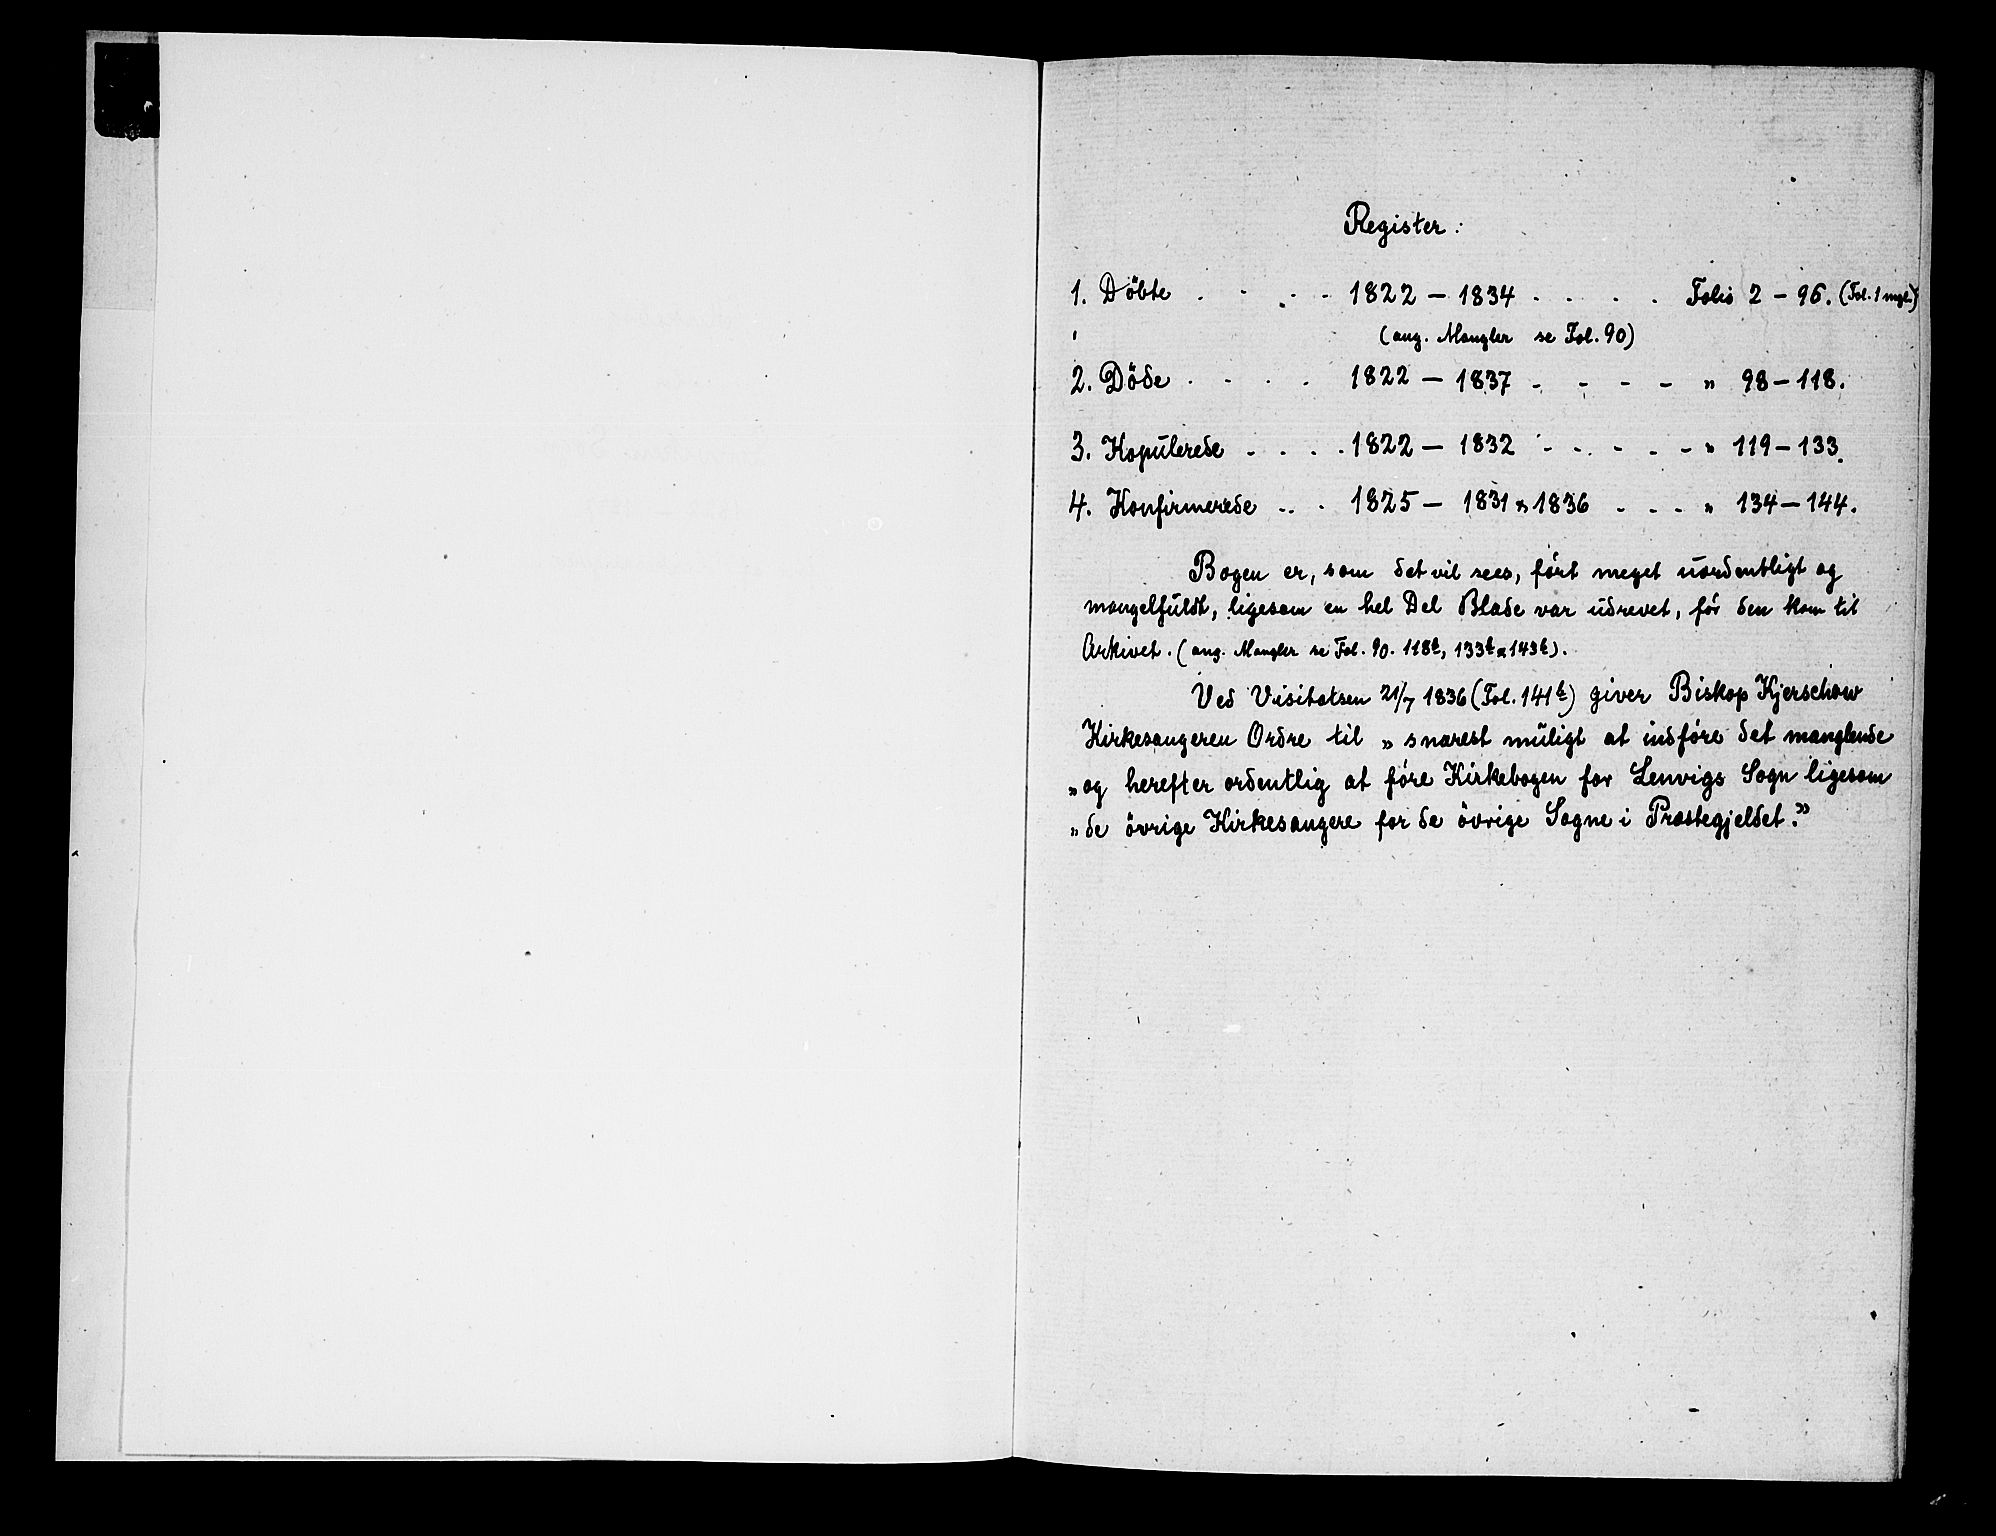 Register:
1. Döbte . . . . . 1822 – 1834 . . . . Folio 2 – 96. (Fol. 1 mgl.)
(ang. Mangler se Fol. 90)
2. Döde . . . . 1822 – 1837 - - - - „ 98 – 118.
3. Kopulerede . . . . 1822 – 1832 - - - - - „ 119 – 133.
4. Konfirmerede . . . 1825 – 1831 & 1836 . - - - „ 134 – 144.
Bogen er, som det vil sees, fört meget uordentligt og
mangelfuldt, ligesom en hel Del Blade var udrevet, för den kom til
Arkivet. (ang. Mangler se Fol. 90. 118b, 133b & 143b).
Ved Visitatsen 21/7 1836 (Fol. 141b) giver Biskop Kjerschow
Kirkesangeren Ordre til „snarest muligt at indföre det manglende
„og herefter ordentlig at före Kirkebogen for Lenvigs Sogn ligesom
„de övrige Kirkesangere for de övrige Sogne i Præstegjeldet.”